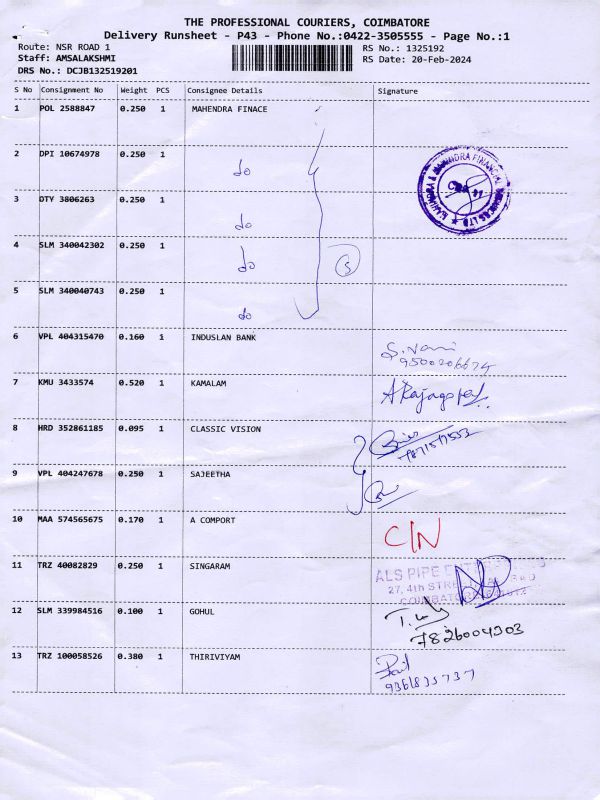 THE PROFESSIONAL COURIERS, COIMBATORE
Delivery Runsheet - P43 - Phone No.:0422-3505555 - Page No.:1
Route: NSR ROAD 1 RS No.: 1325192
Staff: AMSALAKSHMI RS Date: 20-Feb-2024
DRS No.: DCJB132519201
S No Consignment No Weight PCS Consignee Details Signature
1 POL 2588847 0.250 1 MAHENDRA FINACE
2 DPI 10674978 0.250 1 do
MAHINDRA & MAHINDRA FINANCIAL SERVICES LTD
3 DTY 3806263 0.250 1 do
4 SLM 340042302 0.250 1 do 5
5 SLM 340040743 0.250 1 do
6 VPL 404315470 0.160 1 INDUSLAN BANK S. Vani
9500206674
7 KMU 3433574 0.520 1 KAMALAM A Rajagopal
8 HRD 352861185 0.095 1 CLASSIC VISION
9 VPL 404247678 0.250 1 SAJEETHA
10 MAA 574565675 0.170 1 A COMPORT C/N
11 TRZ 40082829 0.250 1 SINGARAM ALS PIPE
27, 4th
12 SLM 339984516 0.100 1 GOHUL
7826004303
13 TRZ 100058526 0.380 1 THIRIVIYAM
9361835737